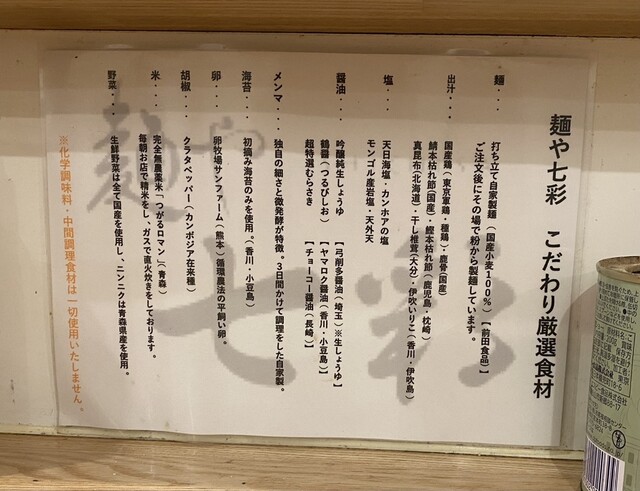 麺や七彩　こだわり厳選食材
麺・・・　打ち立て自家製麺（国産小麦100％）【前田食品】
ご注文後にその場で粉から製麺しています。
出汁・・・　国産鶏（東京軍鶏・種鶏）・鹿骨（国産）
鯖本枯れ節（国産）・鰹本枯れ節（鹿児島・枕崎）
真昆布（北海道）・干し椎茸（大分）・伊吹いりこ（香川・伊吹島）
塩・・・　天日海塩・カンホアの塩
モンゴル産岩塩・天外天
醤油・・・　吟醸純生しょうゆ　【弓削多醤油（埼玉）※生しょうゆ】
鶴醤（つるびしお）　【ヤマロク醤油（香川・小豆島）】
超特選むらさき　【チョーコー醤油（長崎）】
メンマ・・・　独自の細さと微発酵が特徴。3日間かけて調理をした自家製。
海苔・・・　初摘み海苔のみを使用。（香川・小豆島）
卵・・・　卵牧場サンファーム（熊本）循環農法の平飼い卵。
胡椒・・・　クラタペッパー（カンボジア在来種）
米・・・　完全無農薬米「つがるロマン」（青森）
毎朝お店で精米をし、ガスで直火炊きをしております。
野菜・・・　生鮮野菜は全て国産を使用し、ニンニクは青森県産を使用。
※化学調味料・中間調理食材は一切使用いたしません。
麺や
七彩